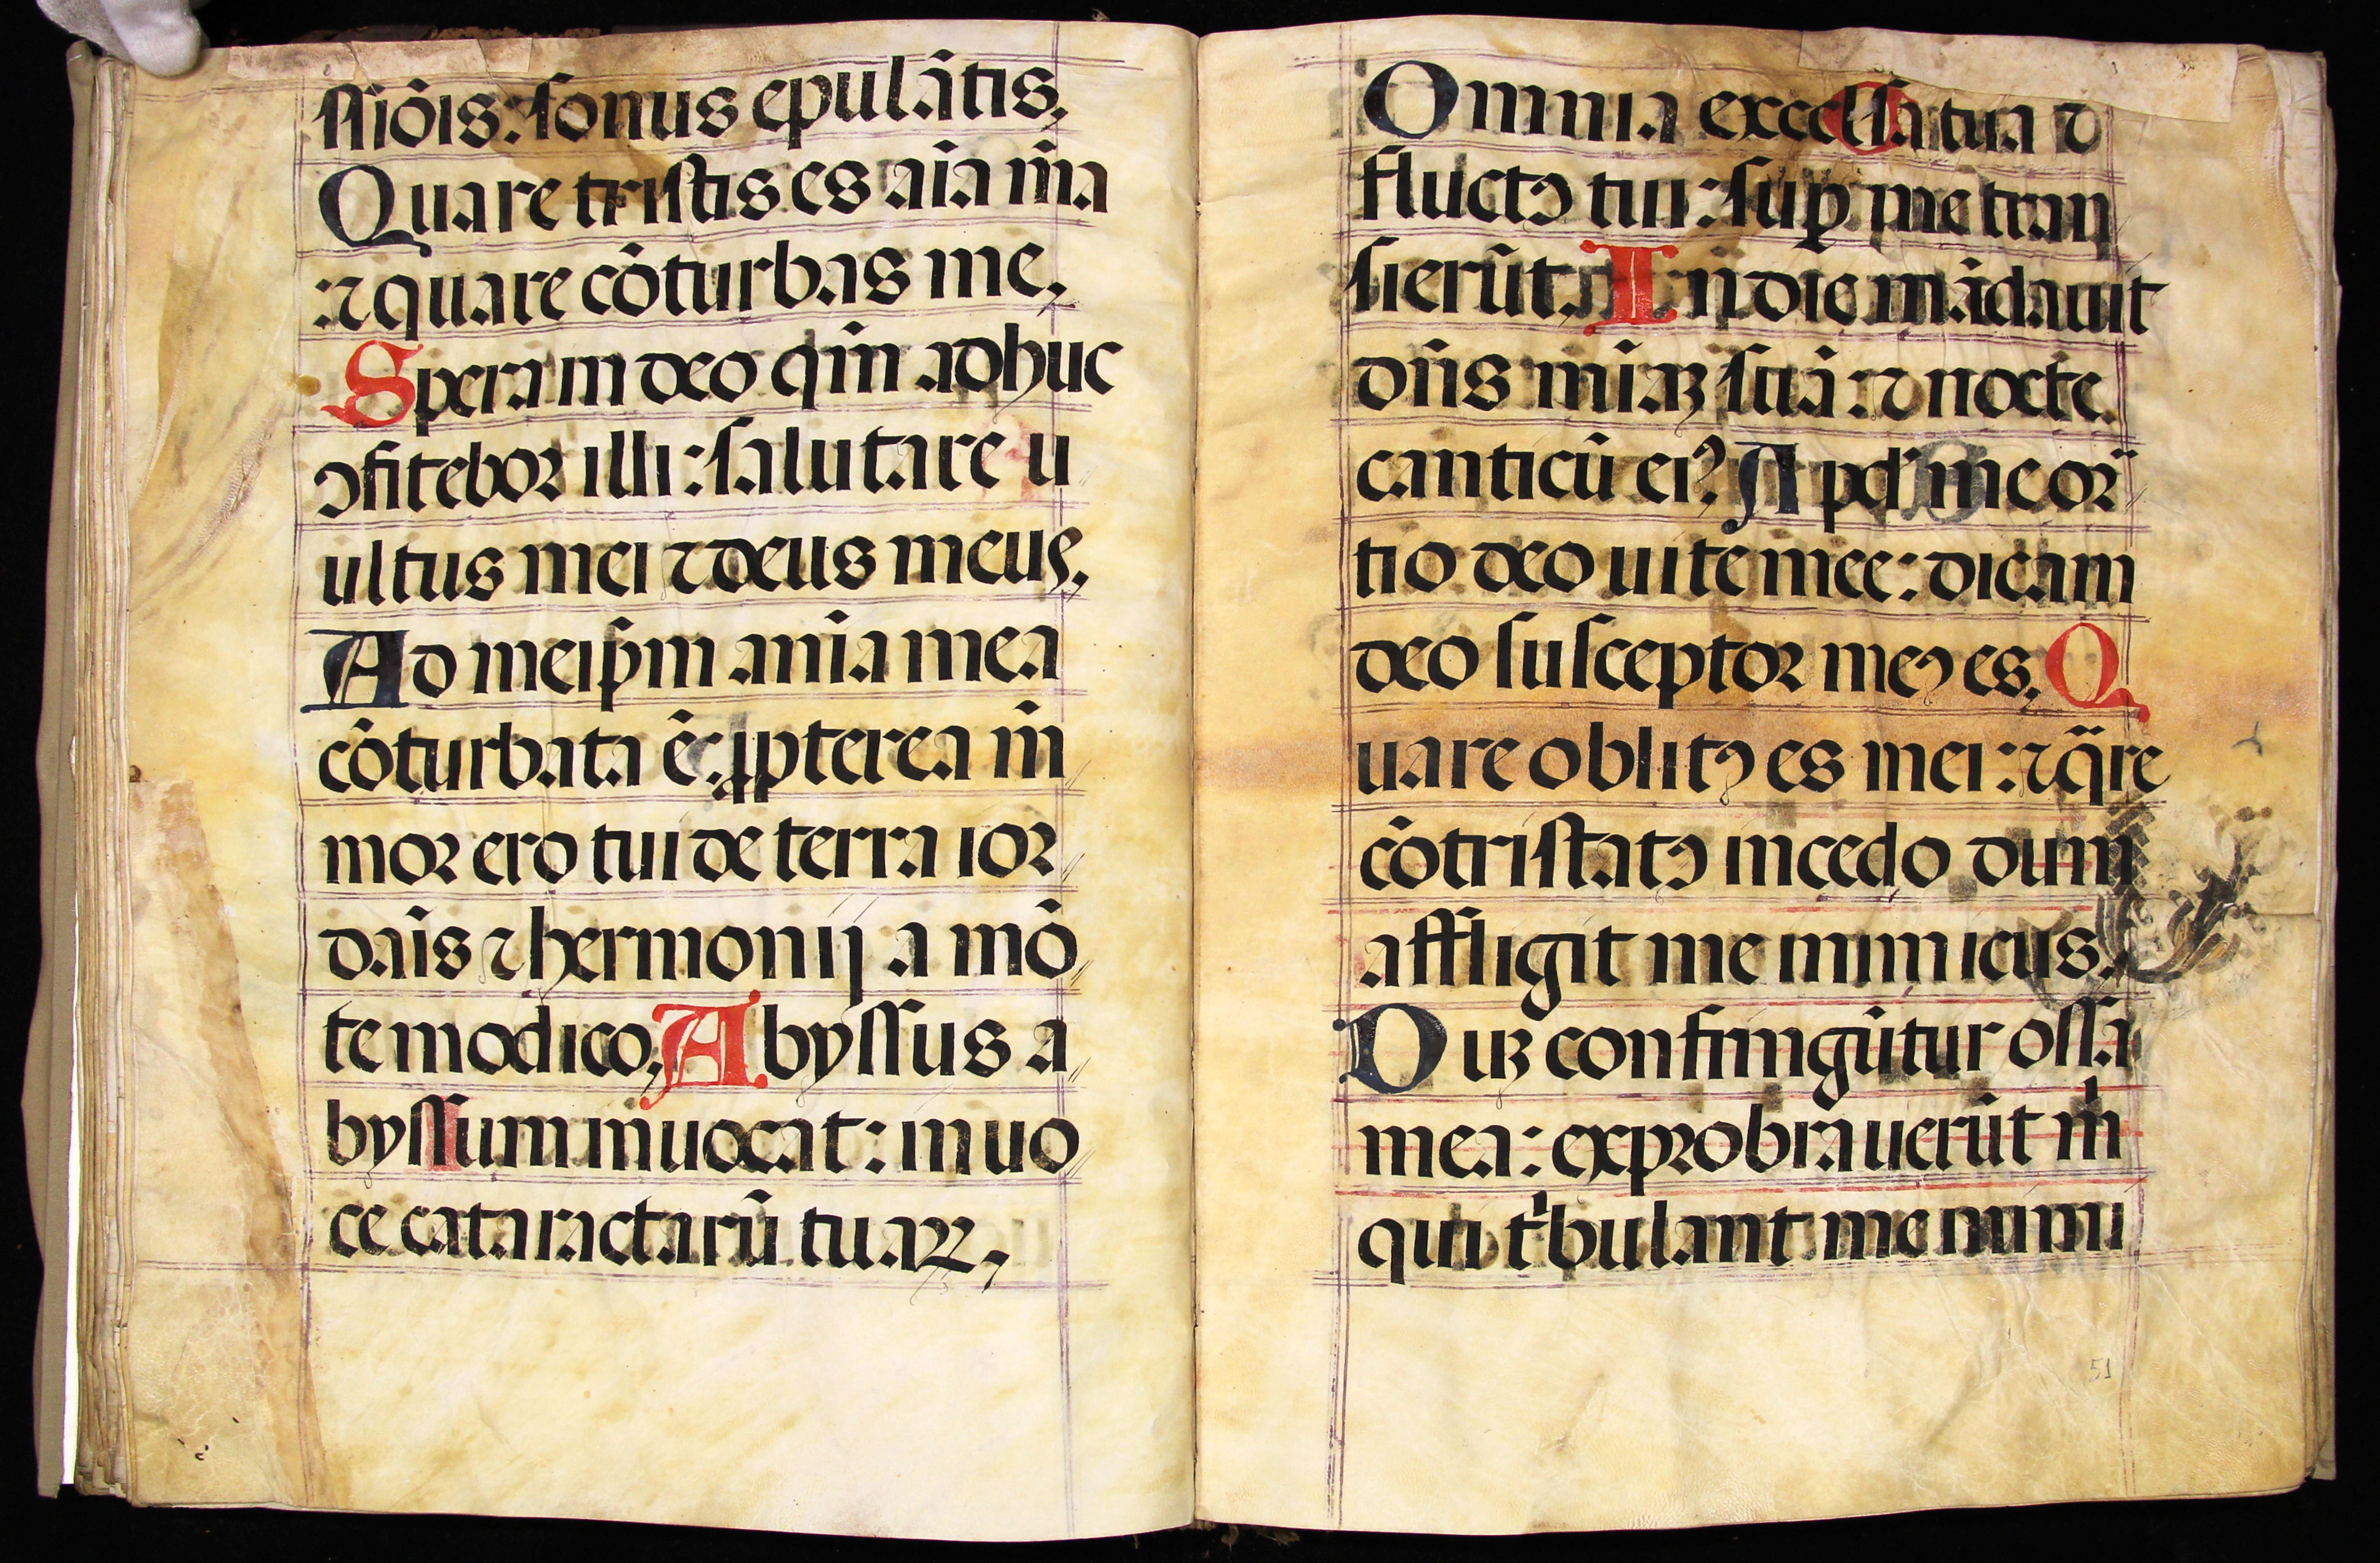 ssiōis: sonus epulātis,
Quare tristis es aīa m̄a
: ⁊ quare cōturbas me,
Spera in deo qm̄ adhuc
ꝯfitebor illi: salutare u
ultus mei ⁊ deus meus,
Ad meip̄m anīa mea
cōturbata ē: ꝓpterea m̄
mor ero tui de terra ior
dāis ⁊ hermonij a mō
te modico, Abyssus a
byssum inuocat: in uo
ce cataractarū tuaꝝ,
Omnia excelsa tua ⁊
fluctꝯ tui: suꝑ me tran
sierūt, In die mādauit
dn̄s mīaꝫ suā: ⁊ nocte
canticū eiꝰ. Apd' me or
tio deo uite mee: dicam
deo susceptor meꝯ es, Q
uare oblitꝯ es mei: ⁊ q̄re
cōtristatꝯ incedo dum
affligit me inimicus,
Duꝫ confringūtur ossa
mea: exprobrauerūt m̄
qui tͥbulant me inimi
51